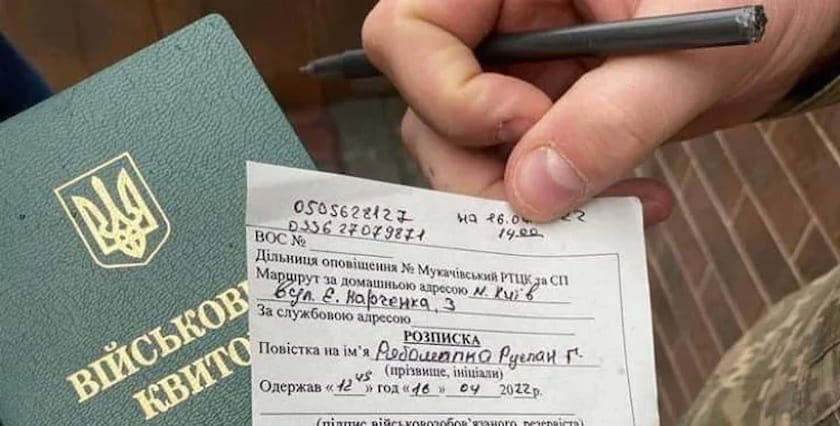 ВІЙСЬКОВИ
КВИТО
0505628127 на 16.0
0336 27079871 14.00
ВОС №
Дільниця оповіщення № Мукачівський РТЦК та СП
Маршрут за домашньою адресою м. Київ
вул. Є. Харченка, 3
За службовою адресою
РОЗПИСКА
Повістка на ім'я Рябошапка Руслан Г.
(прізвище, ініціали)
Одержав «12 45» год «16» 04 2022р.
(підпис військовозобов'язаного, резервіста)